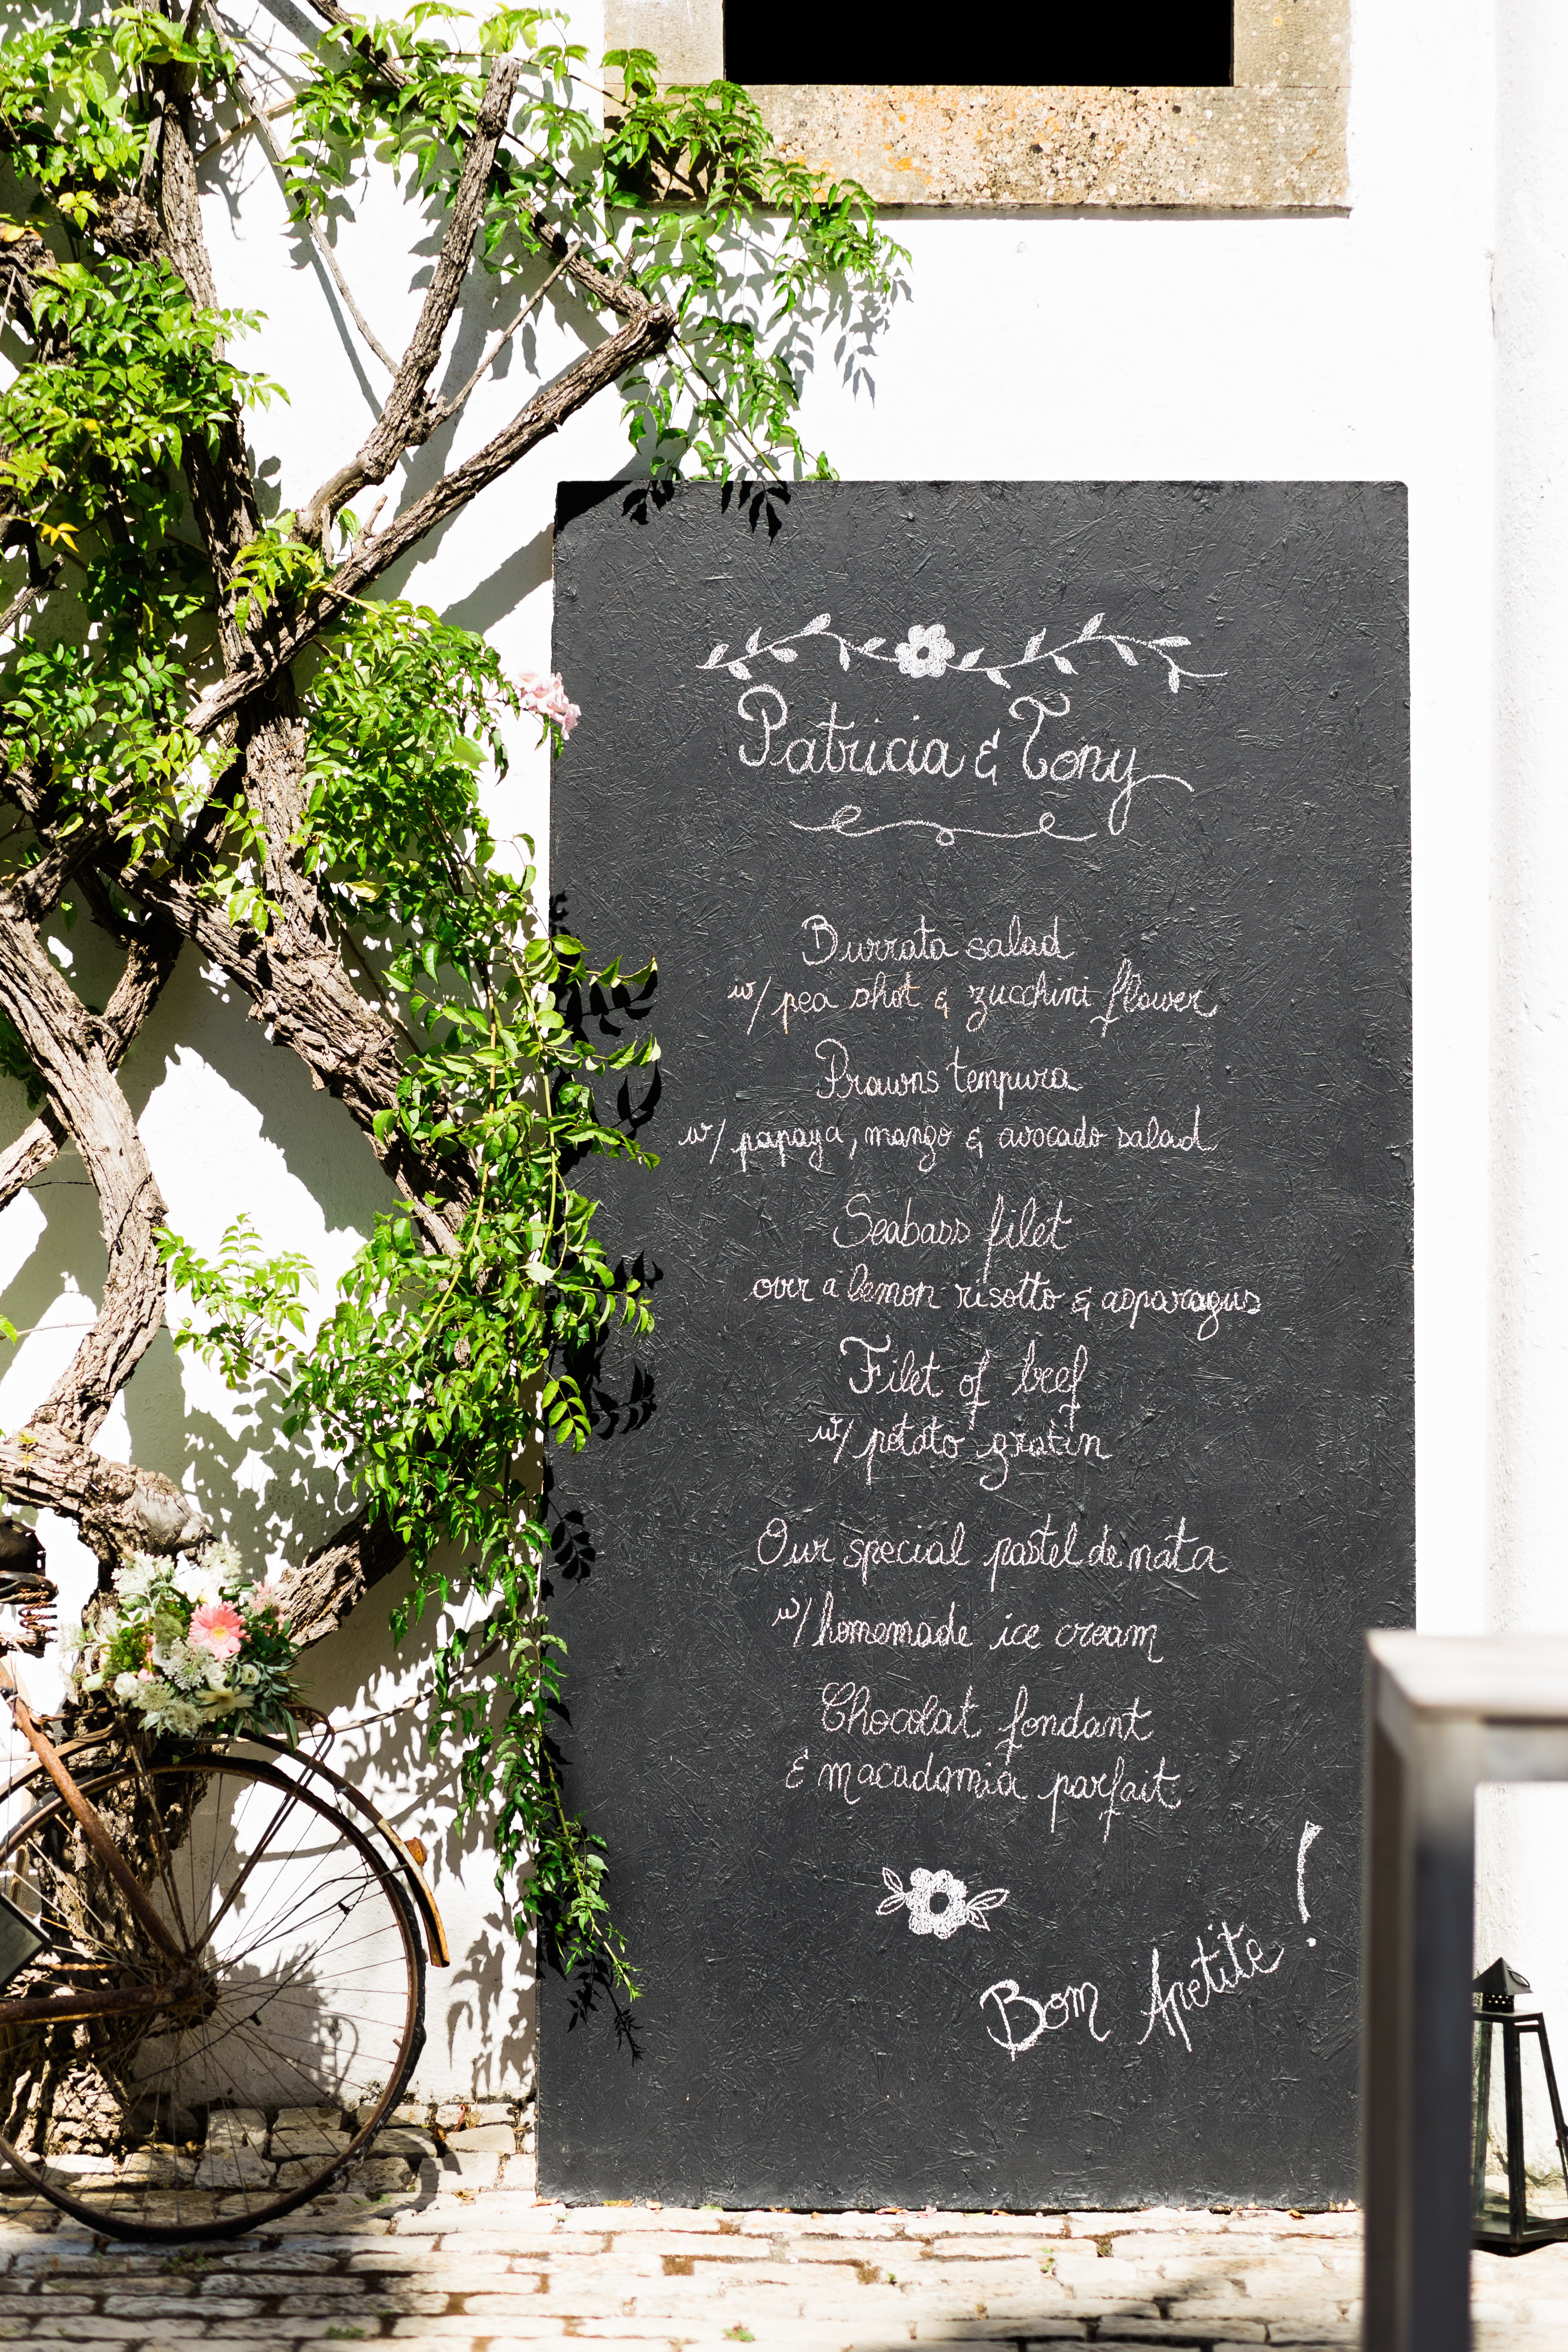 Patricia & Tony
Burrata salad
w/ pea shot & zucchini flower
Prawns tempura
w/ papaya, mango & avocado salad
Seabass filet
over a lemon risotto & asparagus
Filet of beef
w/ potato gratin
Our special pastel de nata
w/ homemade ice cream
Chocolat fondant
& macadamia parfait
Bom Apetite!